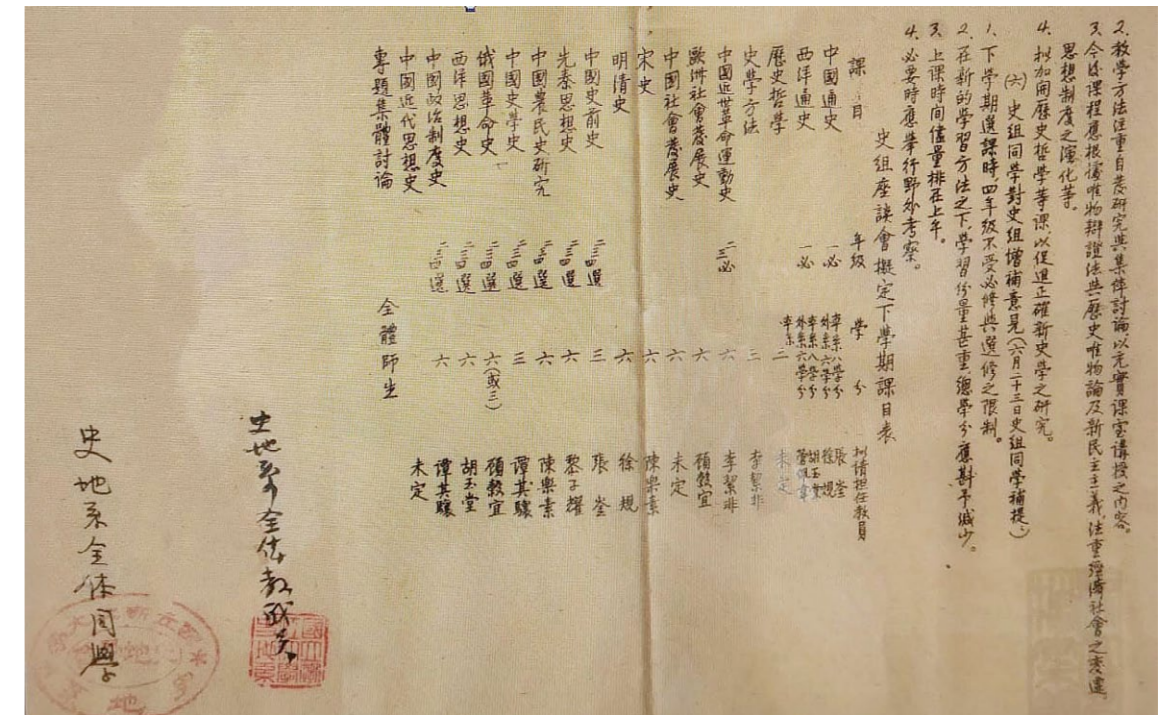 2. 教學方法注重自發研究與集体討論，以充實課室講授之內容。
3. 今後課程應根據唯物辯證法與歷史唯物論及新民主主義，注重經濟社會之变遷，
思想制度之演化等。
4. 拟加開歷史哲學等課，以促進正確新史學之研究。
(六) 史組同學對史組增補意見（六月二十三日史組同學補提）
1. 下學期選課時，四年级不受必修與選修之限制。
2. 在新的學習方法之下，學習份量甚重，總學分應斟予減少。
3. 上課時间儘量排在上午。
4. 必要時應舉行野外考察。
史組座談會擬定下學期課目表
課目 年級 學分 拟請担任教員
中國通史 一必 本系八學分 外系六學分 張崟 徐規
西洋通史 一必 本系八學分 外系六學分 胡玉堂
歷史哲學 本系 二 未定
史學方法 三 李絜非
中國近世革命運動史 二三必 六 李絜非
歐洲社會發展史 六 顧穀宜
中國社會發展史 六 未定
宋史 六 陳樂素
明清史 六 徐規
中國史前史 二三四選 三 張崟
先秦思想史 二三四選 六 黎子耀
中國農民史研究 二三四選 六 陳樂素
中國史學史 二三四選 三 譚其驤
俄國革命史 二三四選 六(或三) 顧穀宜
西洋思想史 二三四選 六 胡玉堂
中國政治制度史 二三四選 六 譚其驤
中國近代思想史 未定
專題集體討論 全體師生
史地系全体教職员
史地系全体同學